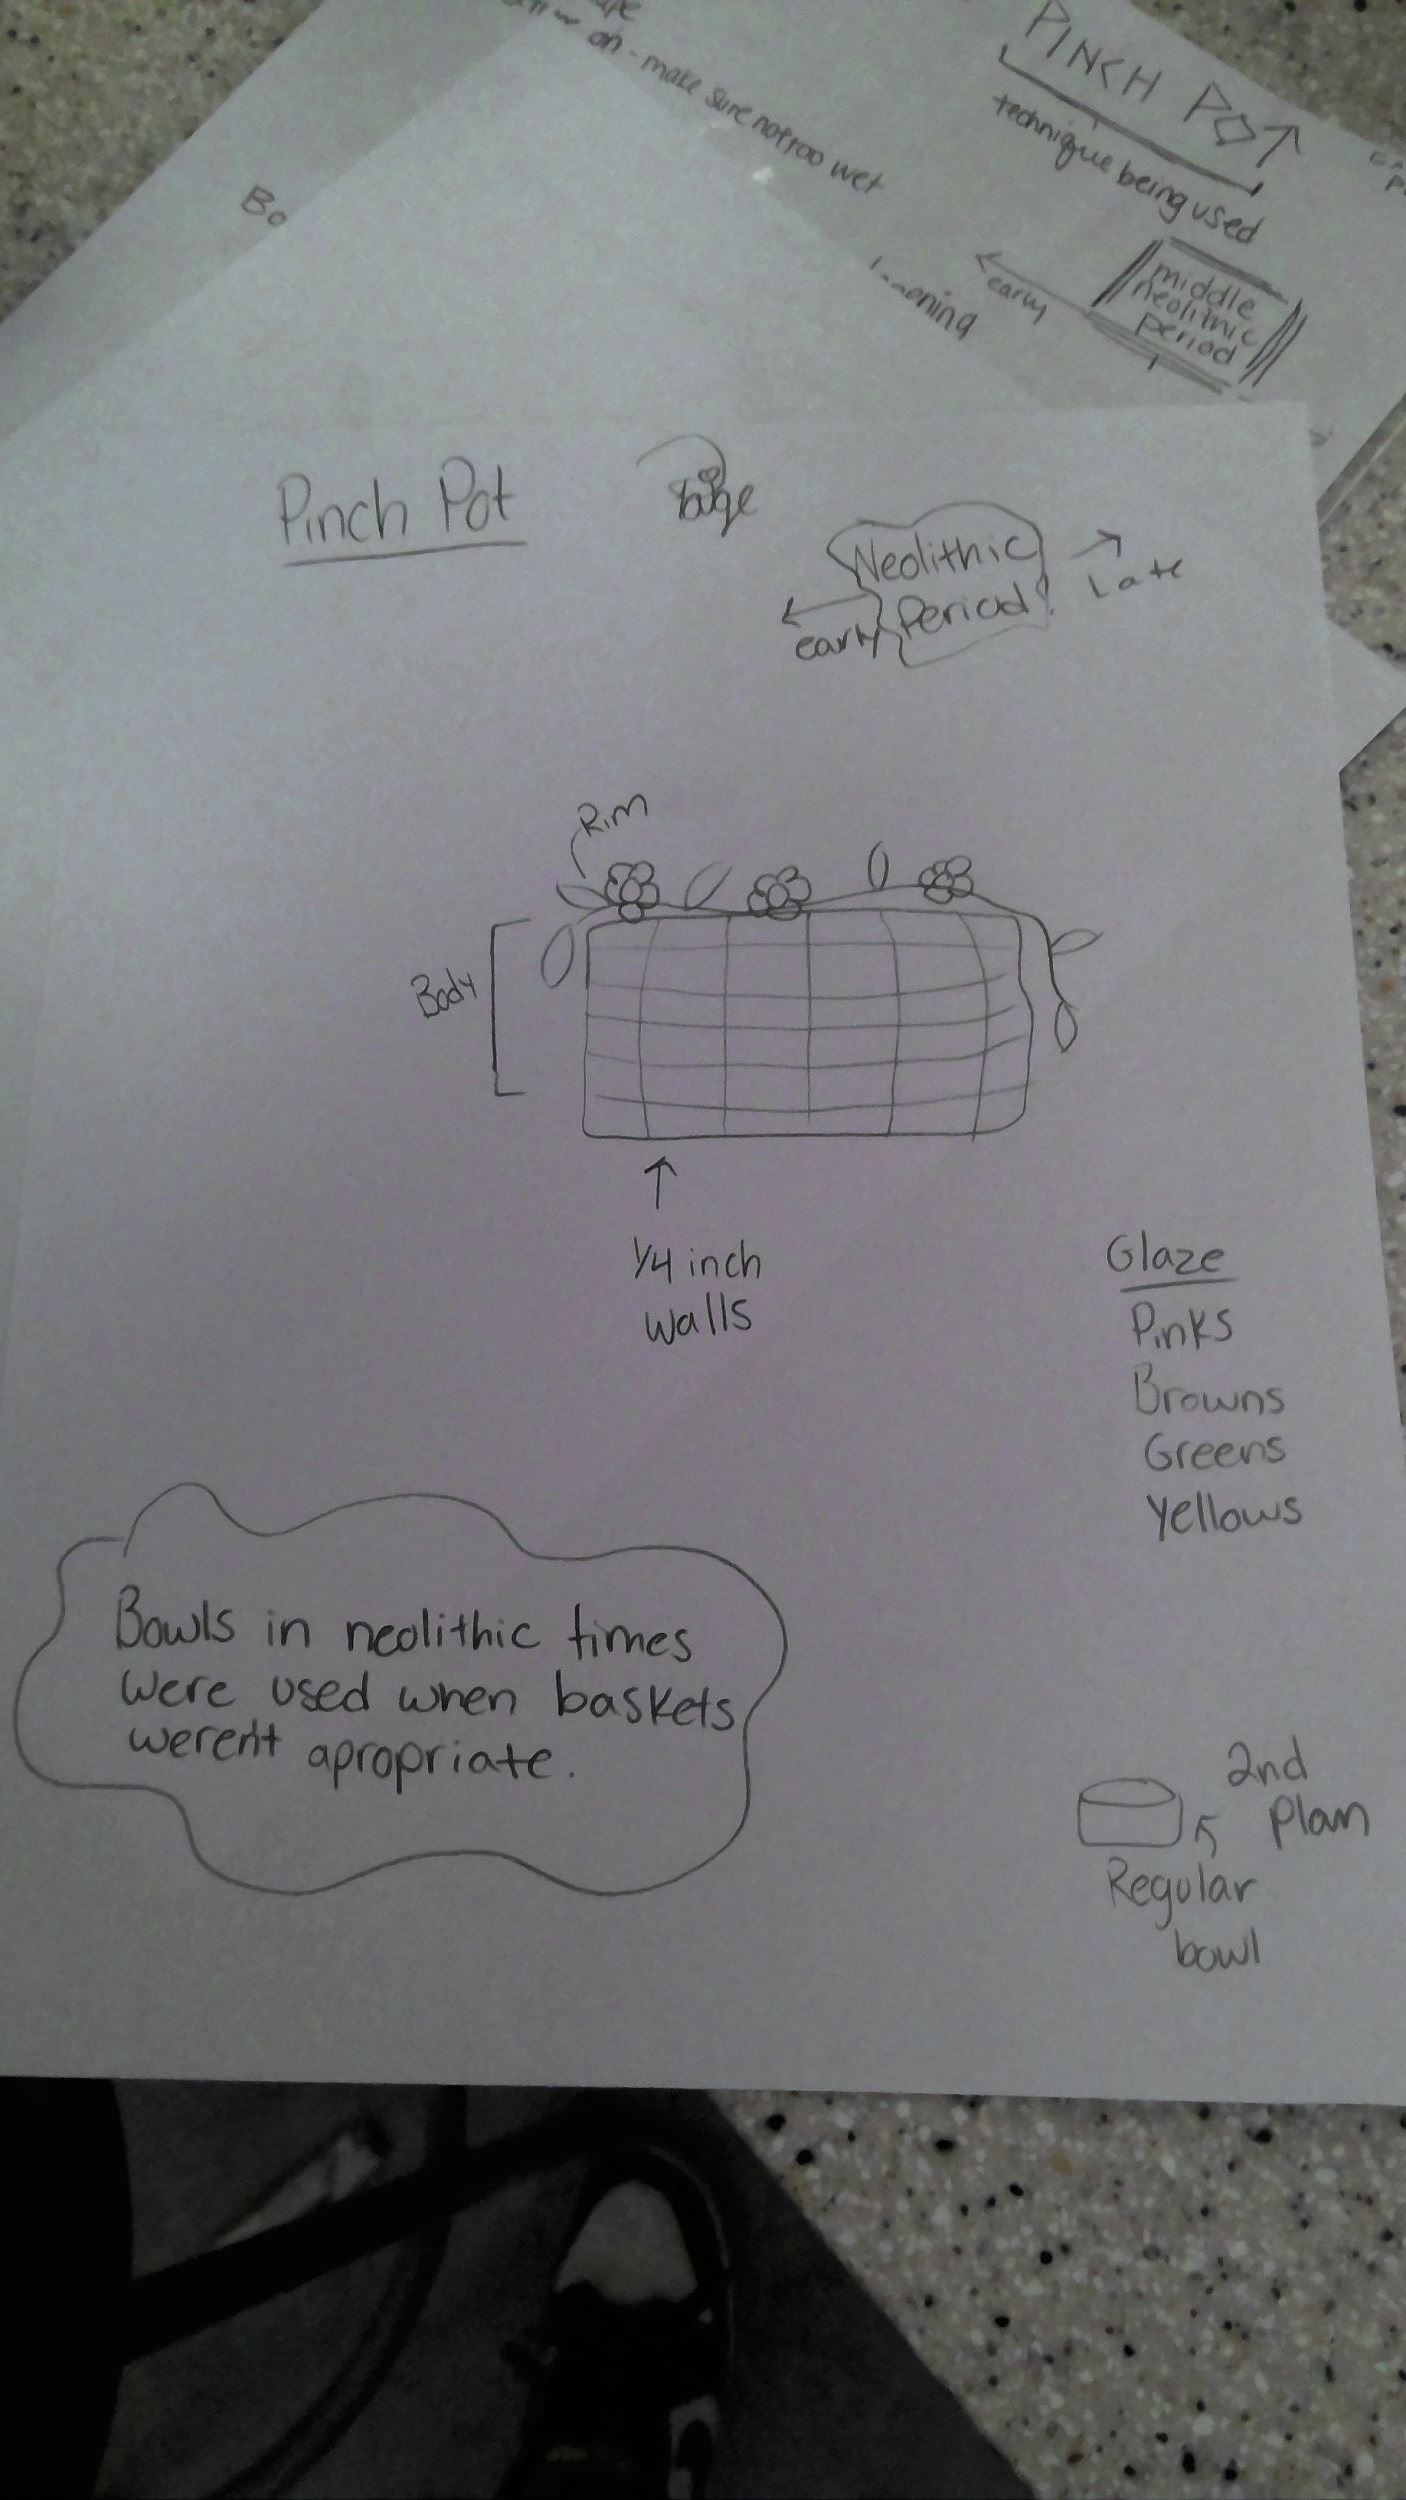 on - make sure not too wet
PINCH POT
technique being used
early
middle
neolithic
period
Pinch Pot
Neolithic
Period
early
Late
Rim
Body
1/4 inch
walls
Glaze
Pinks
Browns
Greens
Yellows
Bowls in neolithic times
were used when baskets
weren't apropriate.
2nd
Plan
Regular
bowl